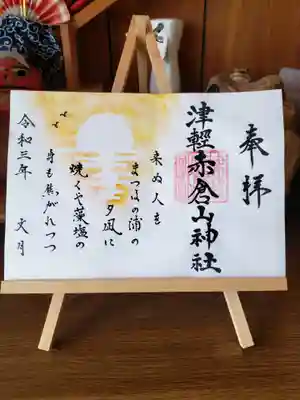 奉拝
津軽赤倉山神社
来ぬ人を
まつほの浦の
夕凪に
焼くや藻塩の
身も焦がれつつ
令和三年 文月